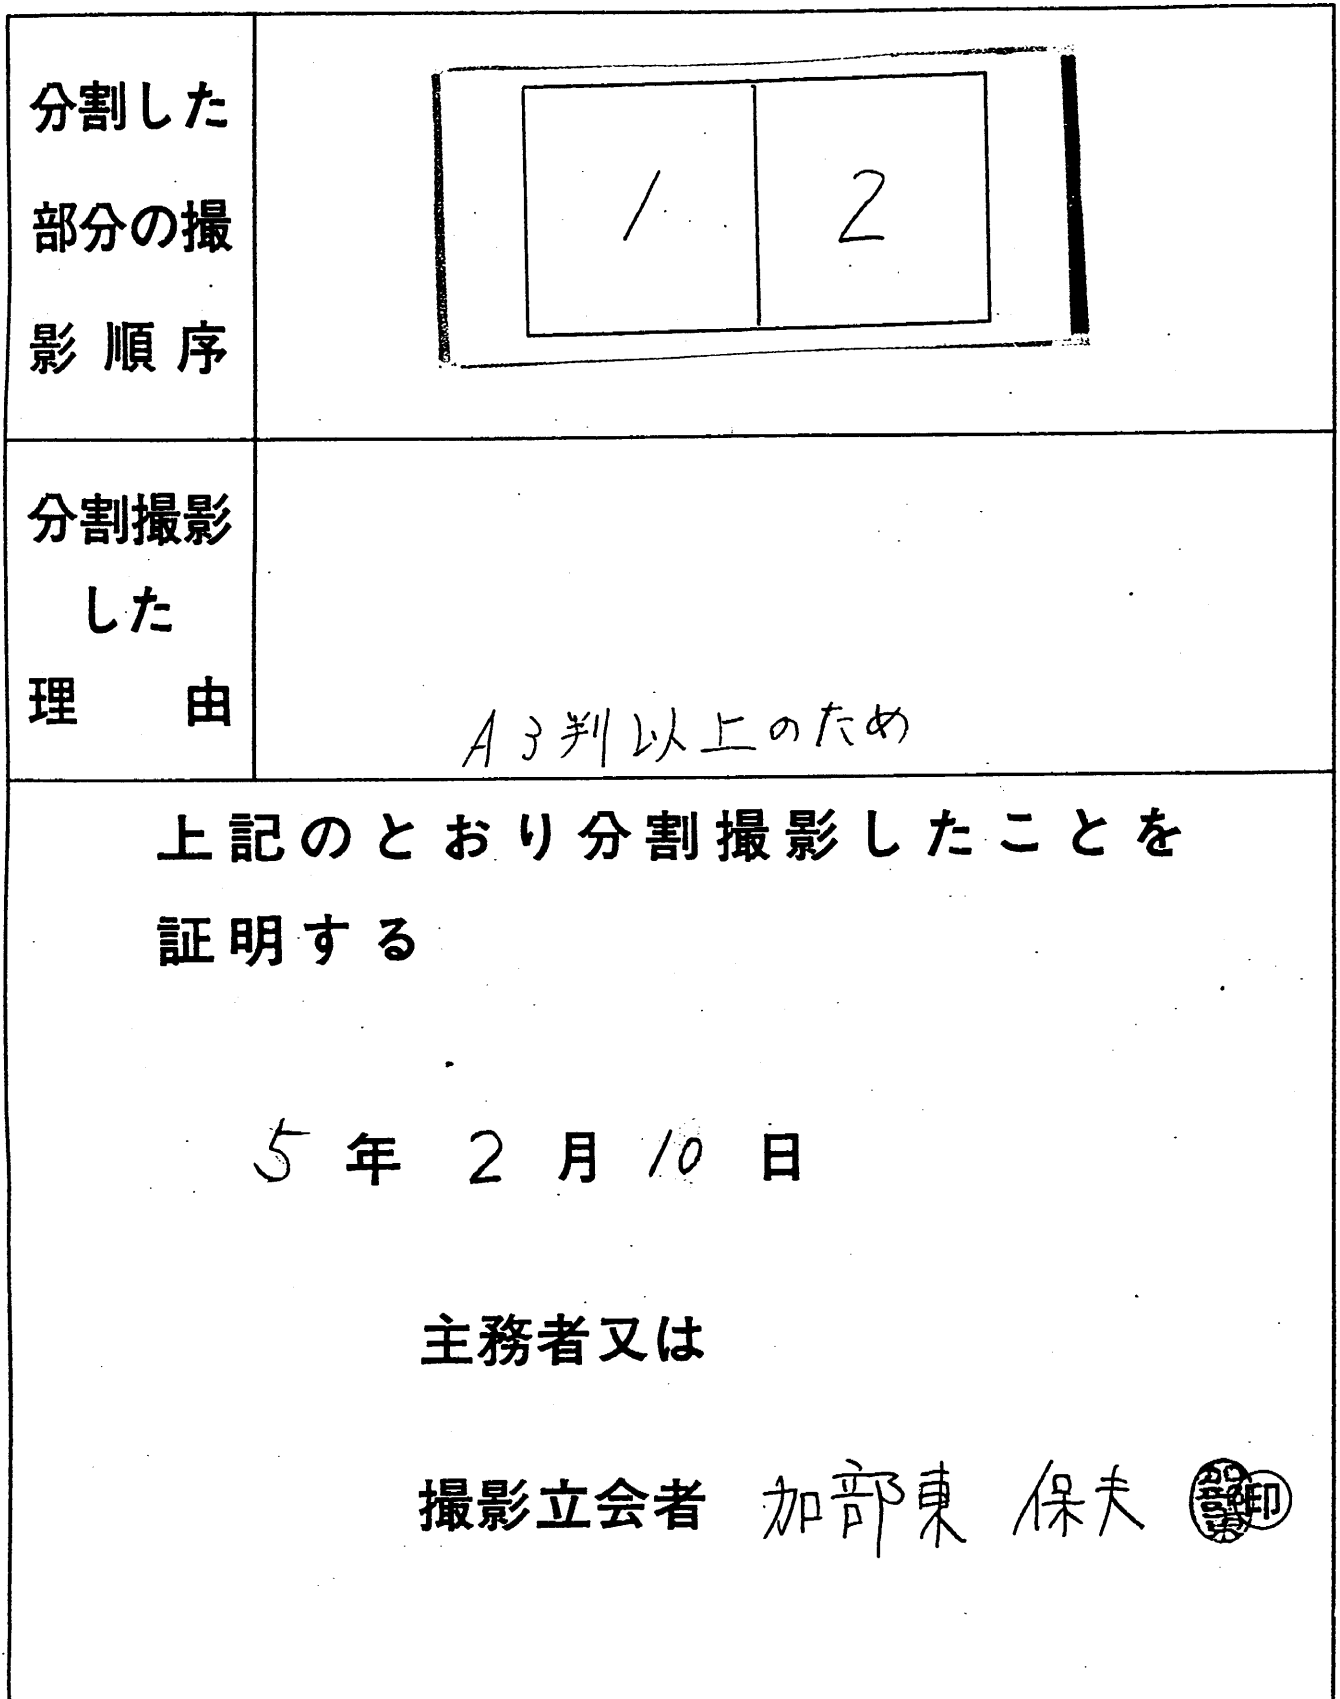 分割した
部分の撮
影順序
1 2
分割撮影
した
理由
A3判以上のため
上記のとおり分割撮影したことを
証明する
5年 2月10日
主務者又は
撮影立会者 加部東 保夫 印
加部東